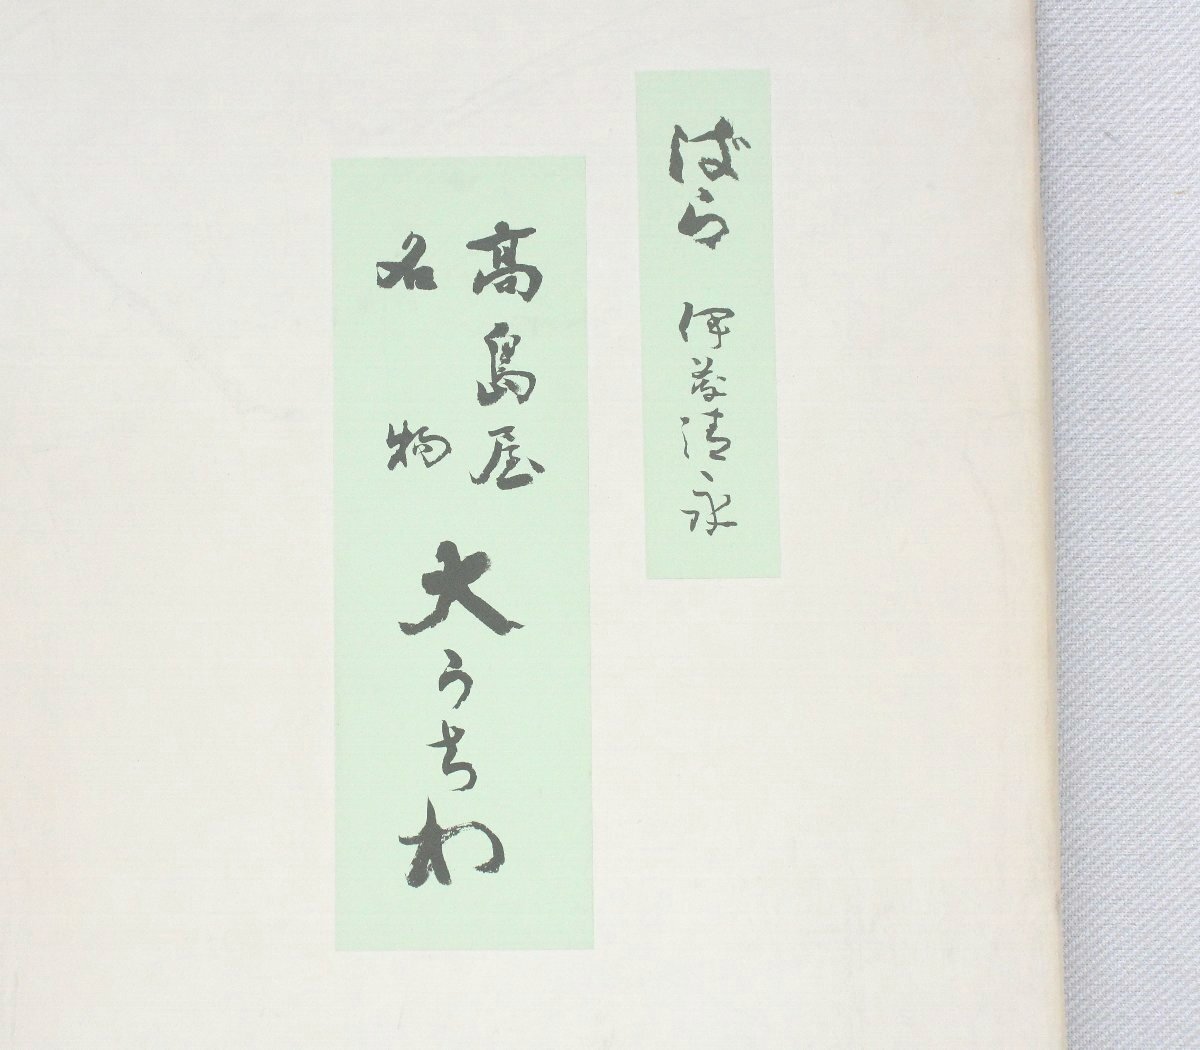 ばら 伊藤清永
高島屋
名物
大うちわ